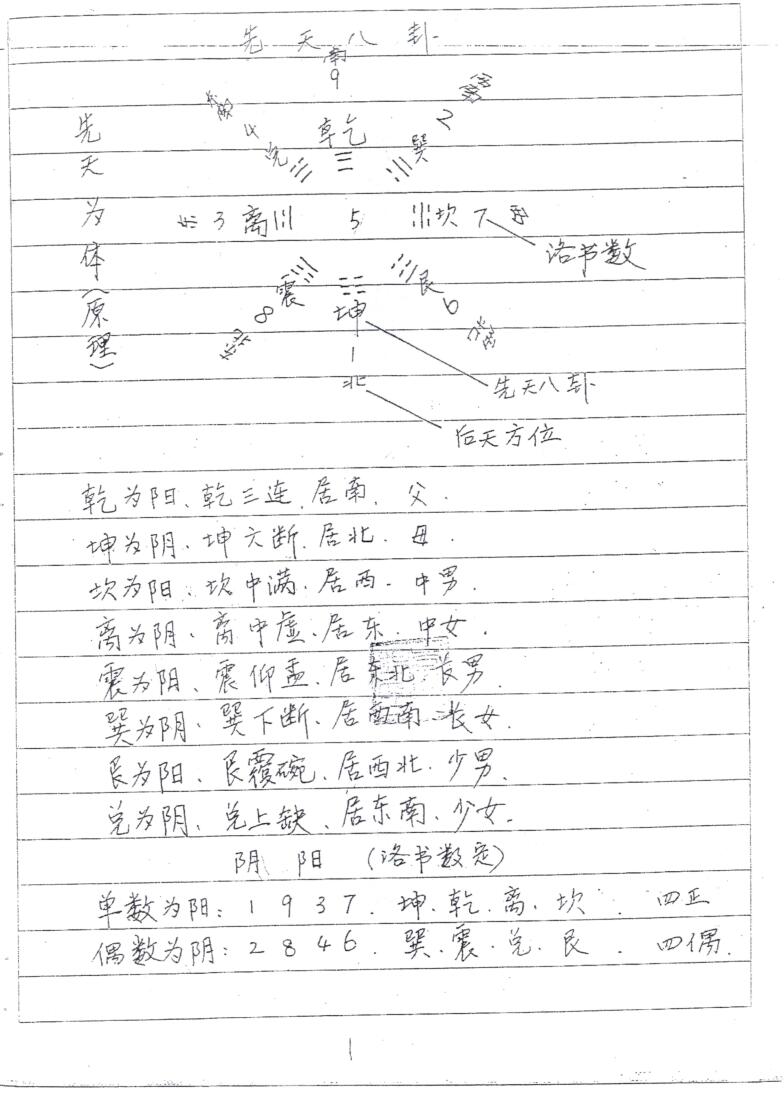 先天八卦
南
9
东南 4 兑 ☱
乾
☰
☴ 巽 2 西南
先天为体（原理）
东 3 离 ☲ 5 ☵ 坎 7 西
洛书数
☳ 震 8 东北
☷
坤
1
北
☶ 艮 6 西北
先天八卦
后天方位
乾为阳、乾三连、居南、父.
坤为阴、坤六断、居北、母.
坎为阳、坎中满、居西、中男.
离为阴、离中虚、居东、中女.
震为阳、震仰盂、居东北、长男.
巽为阴、巽下断、居西南、长女.
艮为阳、艮覆碗、居西北、少男.
兑为阴、兑上缺、居东南、少女.
阴 阳 （洛书数定）
单数为阳：1 9 3 7 . 坤、乾、离、坎 . 四正
偶数为阴：2 8 4 6 . 巽、震、兑、艮 . 四偶.
1